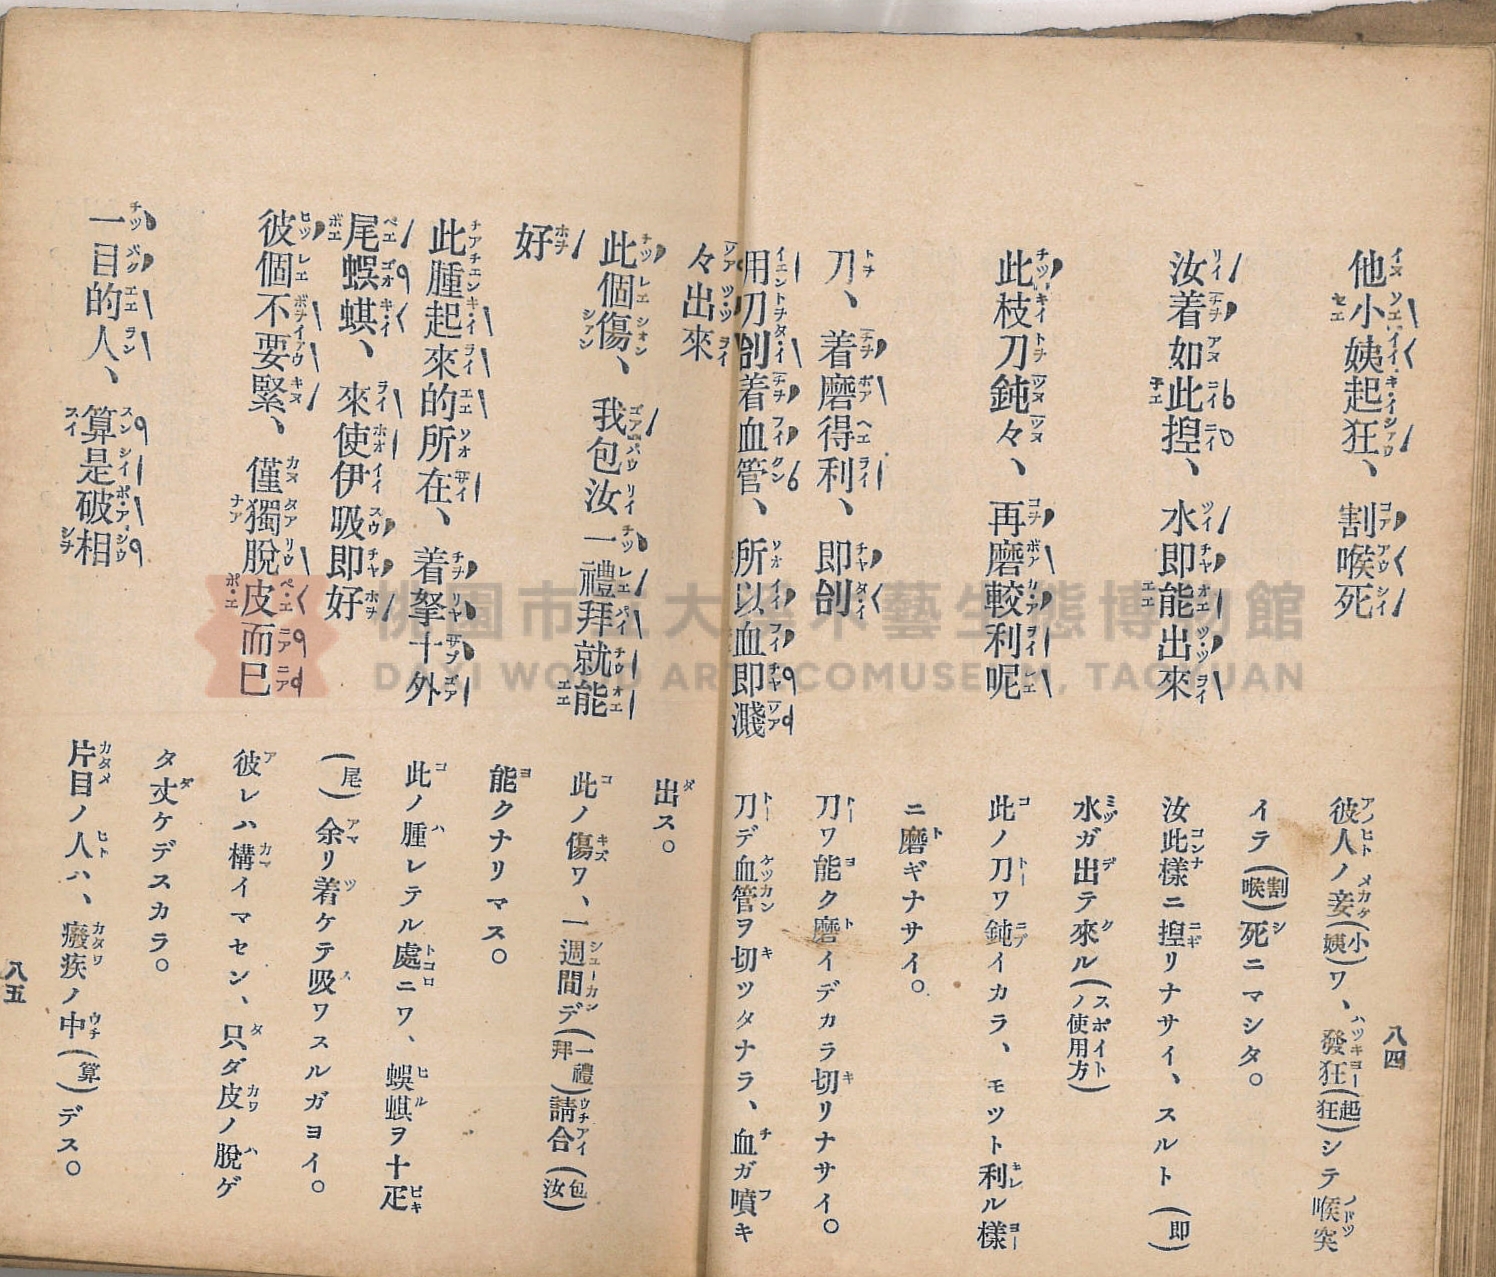 八四
他小姨起狂、割喉死
彼人ノ妾(小姨)ワ、發狂(起狂)シテ喉突
イテ(割喉)死ニマシタ。
汝着如此揑、水即能出來
汝此樣ニ揑リナサイ、スルト(即)
水ガ出テ來ル(スポイトノ使用方)
此枝刀鈍々、再磨較利呢
此ノ刀ワ鈍イカラ、モツト利ル樣
ニ磨ギナサイ。
刀、着磨得利、即刣
刀ワ能ク磨イデカラ切リナサイ。
用刀刣着血管、所以血即濺
刀デ血管ヲ切ツタナラ、血ガ噴キ
々出來
出ス。
此個傷、我包汝一禮拜就能
此ノ傷ワ、一週間デ(一禮拜)請合(包汝)
好
能クナリマス。
此腫起來的所在、着拏十外
此ノ腫レテル處ニワ、蜈蜞ヲ十疋
尾蜈蜞、來使伊吸即好
(尾)余リ着ケテ吸ワスルガヨイ。
彼個不要緊、僅獨脫皮而巳
彼レハ構イマセン、只ダ皮ノ脫ゲ
タ丈ケデスカラ。
一目的人、算是破相
片目ノ人ハ、癈疾ノ中(算)デス。
八五
桃園市立大溪木藝生態博物館
DAXI WOOD ART ECOMUSEUM, TAOYUAN